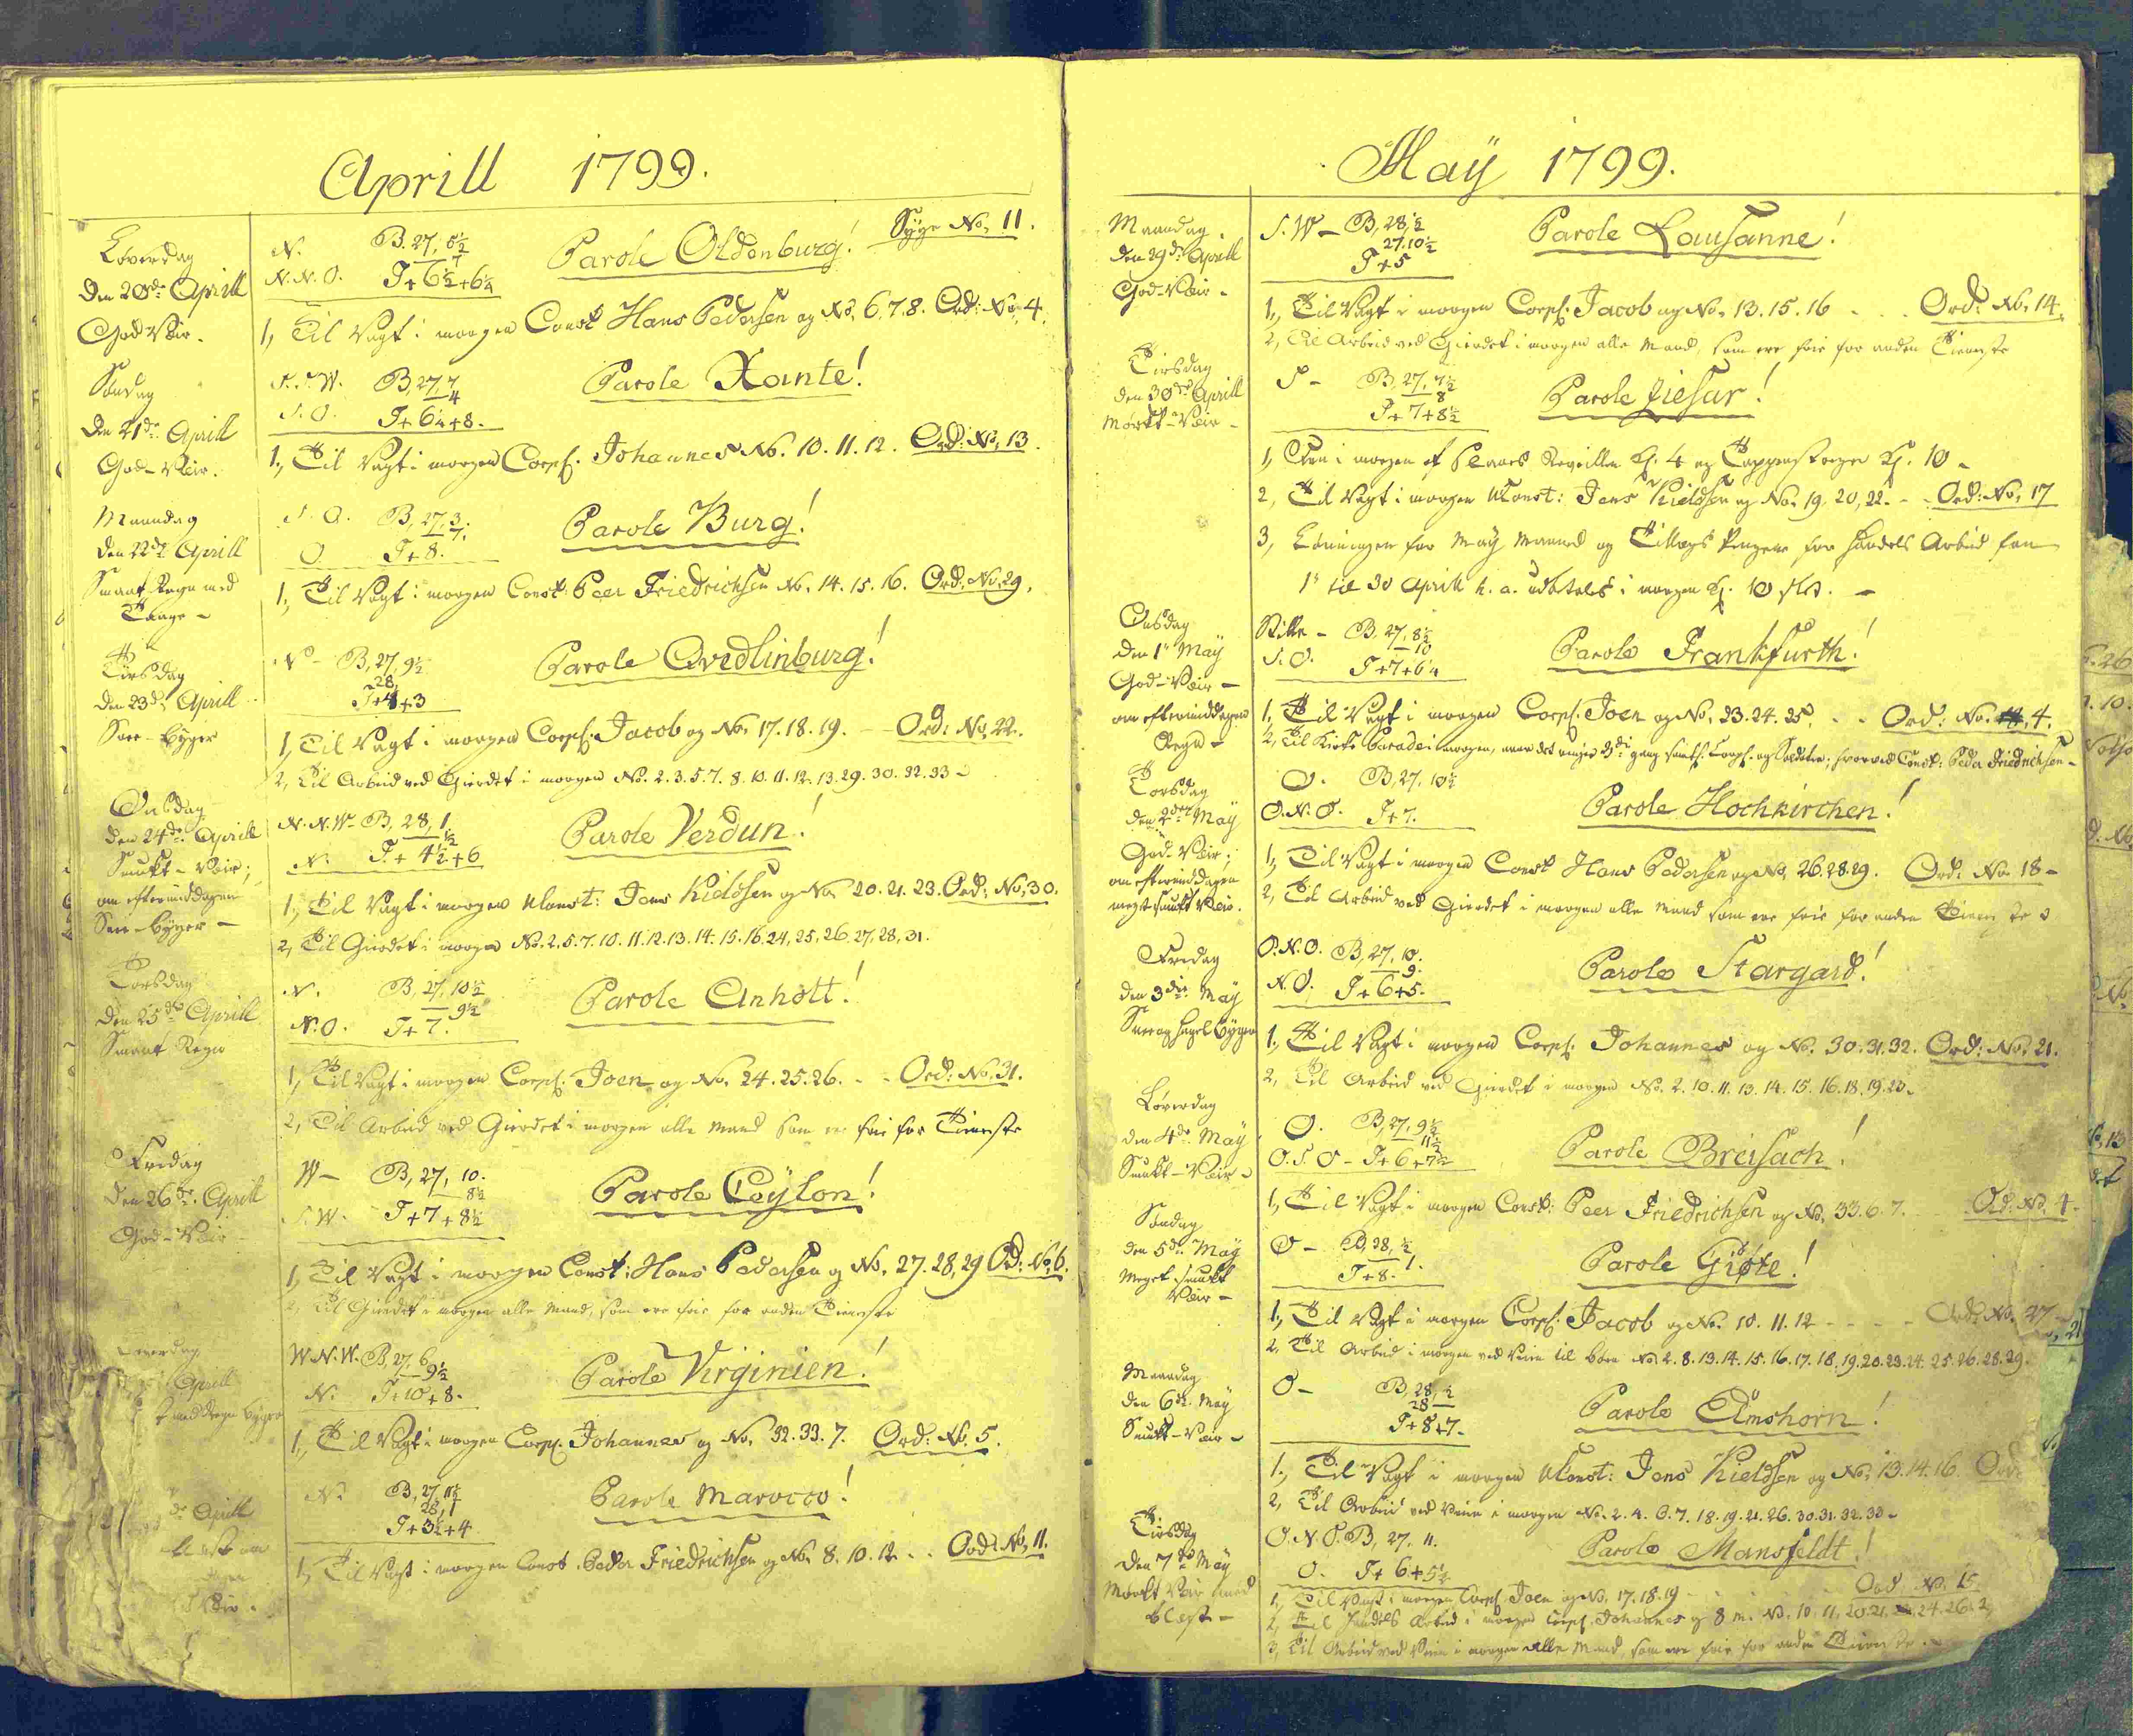 Aprill 1799.
Løverdag
den 20de Aprill
God Veir.
N. B. 27, 6½
N.N.O. T+6½+6¼
Parole Oldenburg!
Syge No. 11.
1, Til Vagt i morgen Const Hans Pedersen og No. 6.7.8. Ord: No. 4.
Søndag
den 21de Aprill
God-Veir.
S.S.W. B, 27, 7
4
S.O. T+6¼+8.
Parole Xainte!
1, Til Vagt i morgen Corpl. Johannes No. 10. 11. 12. Ord: No. 13.
Maandag
den 22de Aprill
Smaat Regn med
Taage -
S.O. B, 27, 3.
7.
O T+8.
Parole Burg!
1, Til Vagt i morgen Const: Peer Friedrichsen No. 14. 15. 16. Ord: No. 29.
Tirsdag
den 23de Aprill
Snee-Byger
N - B, 27, 9½
28,
T+4+3
Parole Qvedlinburg!
1, Til Vagt i morgen Corpl: Jacob og No. 17. 18. 19. Ord: No. 22.
2, Til Arbeid ved Gierdet i morgen No. 2. 3. 5. 7. 8. 10. 11. 12. 13. 29. 30. 32. 33 -
Onsdag
den 24de Aprill
Smukt-Veir;
om eftermiddagen
Snee-byger -
N.N.W- B, 28, 1
1½
N. T+4½+6
Parole Verdun!
1, Til Vagt i morgen UConst: Jens Kieldsen og No. 20. 21. 23. Ord: No. 30.
2, Til Gierdet i morgen No. 2. 5. 7. 10. 11. 12. 13. 14. 15. 16. 24, 25, 26. 27, 28, 31.
Torsdag
den 25de Aprill
Smaat Regn
N. B, 27, 10½
9½
N.O. T+7.
Parole Anholt!
1, Til Vagt i morgen Corpl. Joen og No. 24. 25. 26. - - Ord: No. 31.
2, Til Arbeid ved Gierdet i morgen alle Mand som er frie for Tieneste
Fredag
den 26de Aprill
God-Veir
W- B, 27, 10.
8½
S.W. T+7+8½
Parole Ceylon!
1, Til Vagt i morgen Const: Hans Pedersen og No. 27. 28, 29 Ord: No. 6.
2, Til Gierdet i morgen alle Mand, som ere frie for anden Tieneste
Aprill
W.N.W. B, 27, 6
9½
N. T+10+8.
Parole Virginien!
1, Til Vagt i morgen Corpl. Johannes og No. 32. 33. 7. Ord: No. 5.
de Aprill
N. B, 27, 11½
28, 1
T+3½+4
Parole Marocco!
1, Til Vagt i morgen Const. Peder Friedrichsen og No. 8. 10. 12. . . Ord: No. 11.
Maÿ 1799.
Maandag.
den 29de Aprill
God-Veir-
S.W- B, 28, ½
27. 10½
T+5
Parole Lausanne!
1, Til Vagt i morgen Corpl: Jacob og No. 13. 15. 16 - . . Ord: No. 14.
2, Til Arbeid ved Gierdet i morgen alle Mand, som ere frie for anden Tieneste
Tirsdag
den 30de Aprill
Mørkt-Veir-
S- B, 27, 7½
8
T+7+8½
Parole Ziesar!
1, Fra i morgen af slaaes Reveillen Kl. 4 og Tappenstregen Kl. 10 -
2, Til Vagt i morgen UConst: Jens Kieldsen og No. 19, 20, 22. - - Ord: No. 17
3, Lønningen for Maÿ Maaned og Tillægs Pengene for Handels Arbeid fra
1te til 30 Aprill h. a. udbetales i morgen Kl. 10 slet. -
Onsdag
den 1te Maÿ
God-Veir -
om eftermiddagen
Regn -
Stille - B, 27, 8½
10
S.O. T+7+6¼
Parole Frankfurth!
1, Til Vagt i morgen Corpl. Joen og No. 23. 24. 25. - - Ord: No. 4.
2, Til Kirke Parade i morgen, naar det ringer 3die gang samtl. Corpl. og Soldater; hvorved Const: Peder Friedrichsen -
Torsdag
den 2den Maÿ
God-Veir;
om eftermiddagen
meget smukt Veir.
O. B, 27, 10½
O.N.O. T+7.
Parole Hochkirchen!
1, Til Vagt i morgen Const Hans Pedersen og No. 26. 28. 29. Ord: No. 18 -
2, Til Arbeid ved Gierdet i morgen alle Mand som ere frie for anden Tieneste
Fredag
den 3die Maÿ
Snee og Hagel Byger
O.N.O. B, 27, 10.
9.
N.O. T+6+5.
Parole Stargard!
1, Til Vagt i morgen Corpl. Johannes og No. 30. 31. 32. Ord: No. 21.
2, Til Arbeid ved Gierdet i morgen No. 2. 10. 11. 13. 14. 15. 16. 18. 19. 23-
Løverdag
den 4de Maÿ
Smukt-Veir -
O. B, 27, 9½
11½
O.S.O- T+6+7½
Parole Breisach!
1, Til Vagt i morgen Const: Peer Friedrichsen og No. 33. 6. 7. Ord: No. 4-
Søndag
den 5de Maÿ
Meget smukt
Veir -
O- B, 28, ½
1.
T+8.
Parole Giöte!
1, Til Vagt i morgen Corpl: Jacob og No. 10. 11. 12 - - - - Ord: No. 27
2, Til Arbeid i morgen ved Veien til No. 2. 8. 13. 14. 15. 16. 17. 18. 19. 20. 23. 24. 25. 26. 28. 29.
Maandag
den 6te Maÿ
Smukt-Veir -
O- B, 28, ½
28
T+8+7-
Parole Elmshorn!
1, Til Vagt i morgen UConst: Jens Kieldsen og No. 13. 14. 16. Ord
2, Til Arbeid ved Veien i morgen No. 2. 4. 6. 7. 18. 19. 21. 26. 30. 31. 32. 33 -
Tirsdag
den 7de Maÿ
Mørkt Veir med
blæst -
O.N.O. B, 27, 11.
O. T+6+5½
Parole Mansfeldt!
1, Til Vagt i morgen Corpl. Joen og No. 17. 18. 19 Ord No. 15
2, Til Handels Arbeid i morgen Corpl. Johannes og 8 m. No. 10. 11. 20. 21. 24. 26. 2
3, Til Arbeid ved Veien i morgen alle Mand, som ere frie for anden Tieneste. -